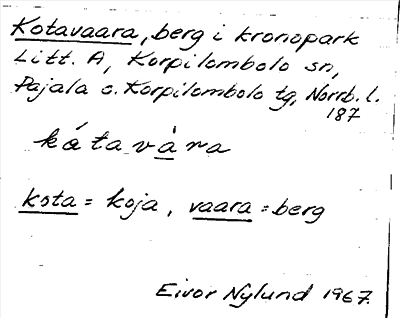 Kotavaara, berg i kronopark
Litt. A, Korpilombolo sn,
Pajala o. Korpilombolo tg, Norrb. l.
187
kátavàra
kota = koja, vaara = berg
Eivor Nylund 1967.